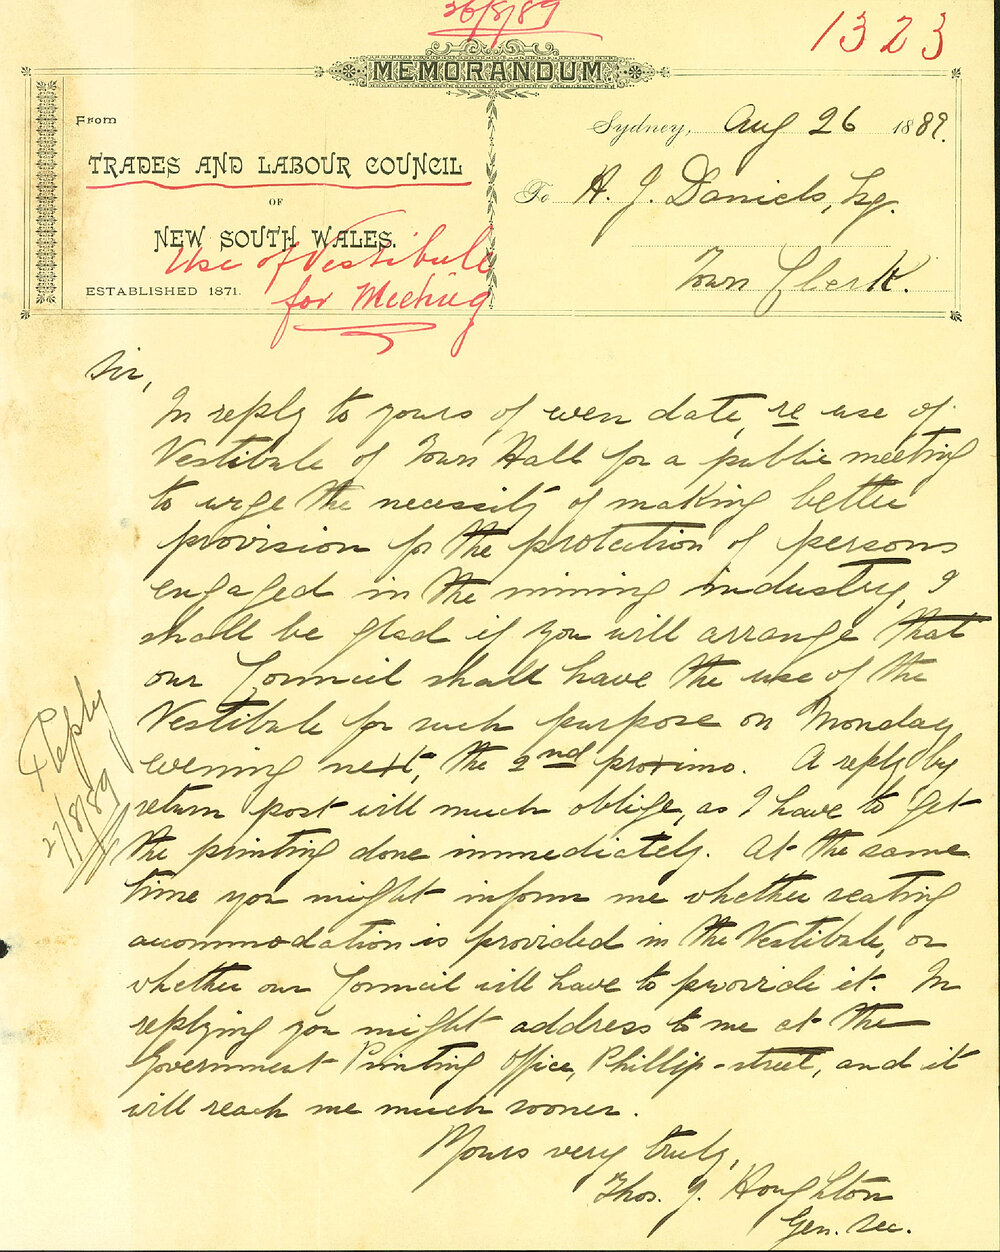 26/8/89
1323
MEMORANDUM.
From
TRADES AND LABOUR COUNCIL
OF
NEW SOUTH WALES.
ESTABLISHED 1871.
Use of Vestibule
for Meeting
Sydney, Aug 26 1889.
To A. J. Daniels, Esq.
Town Clerk.
Sir,
In reply to yours of even date, re use of
Vestibule of Town Hall for a public meeting
to urge the necessity of making better
provision for the protection of persons
engaged in the mining industry, I
shall be glad if you will arrange that
our Council shall have the use of the
Vestibule for such purpose on Monday
evening next, the 2nd proximo. A reply by
return post will much oblige, as I have to get
the printing done immediately. At the same
time you might inform me whether seating
accommodation is provided in the Vestibule, or
whether our Council will have to provide it. In
replying you might address to me at the
Government Printing Office, Phillip-street, and it
will reach me much sooner.
Yours very truly,
Thos. J. Houghton
Gen. Sec.
Reply
27/8/89